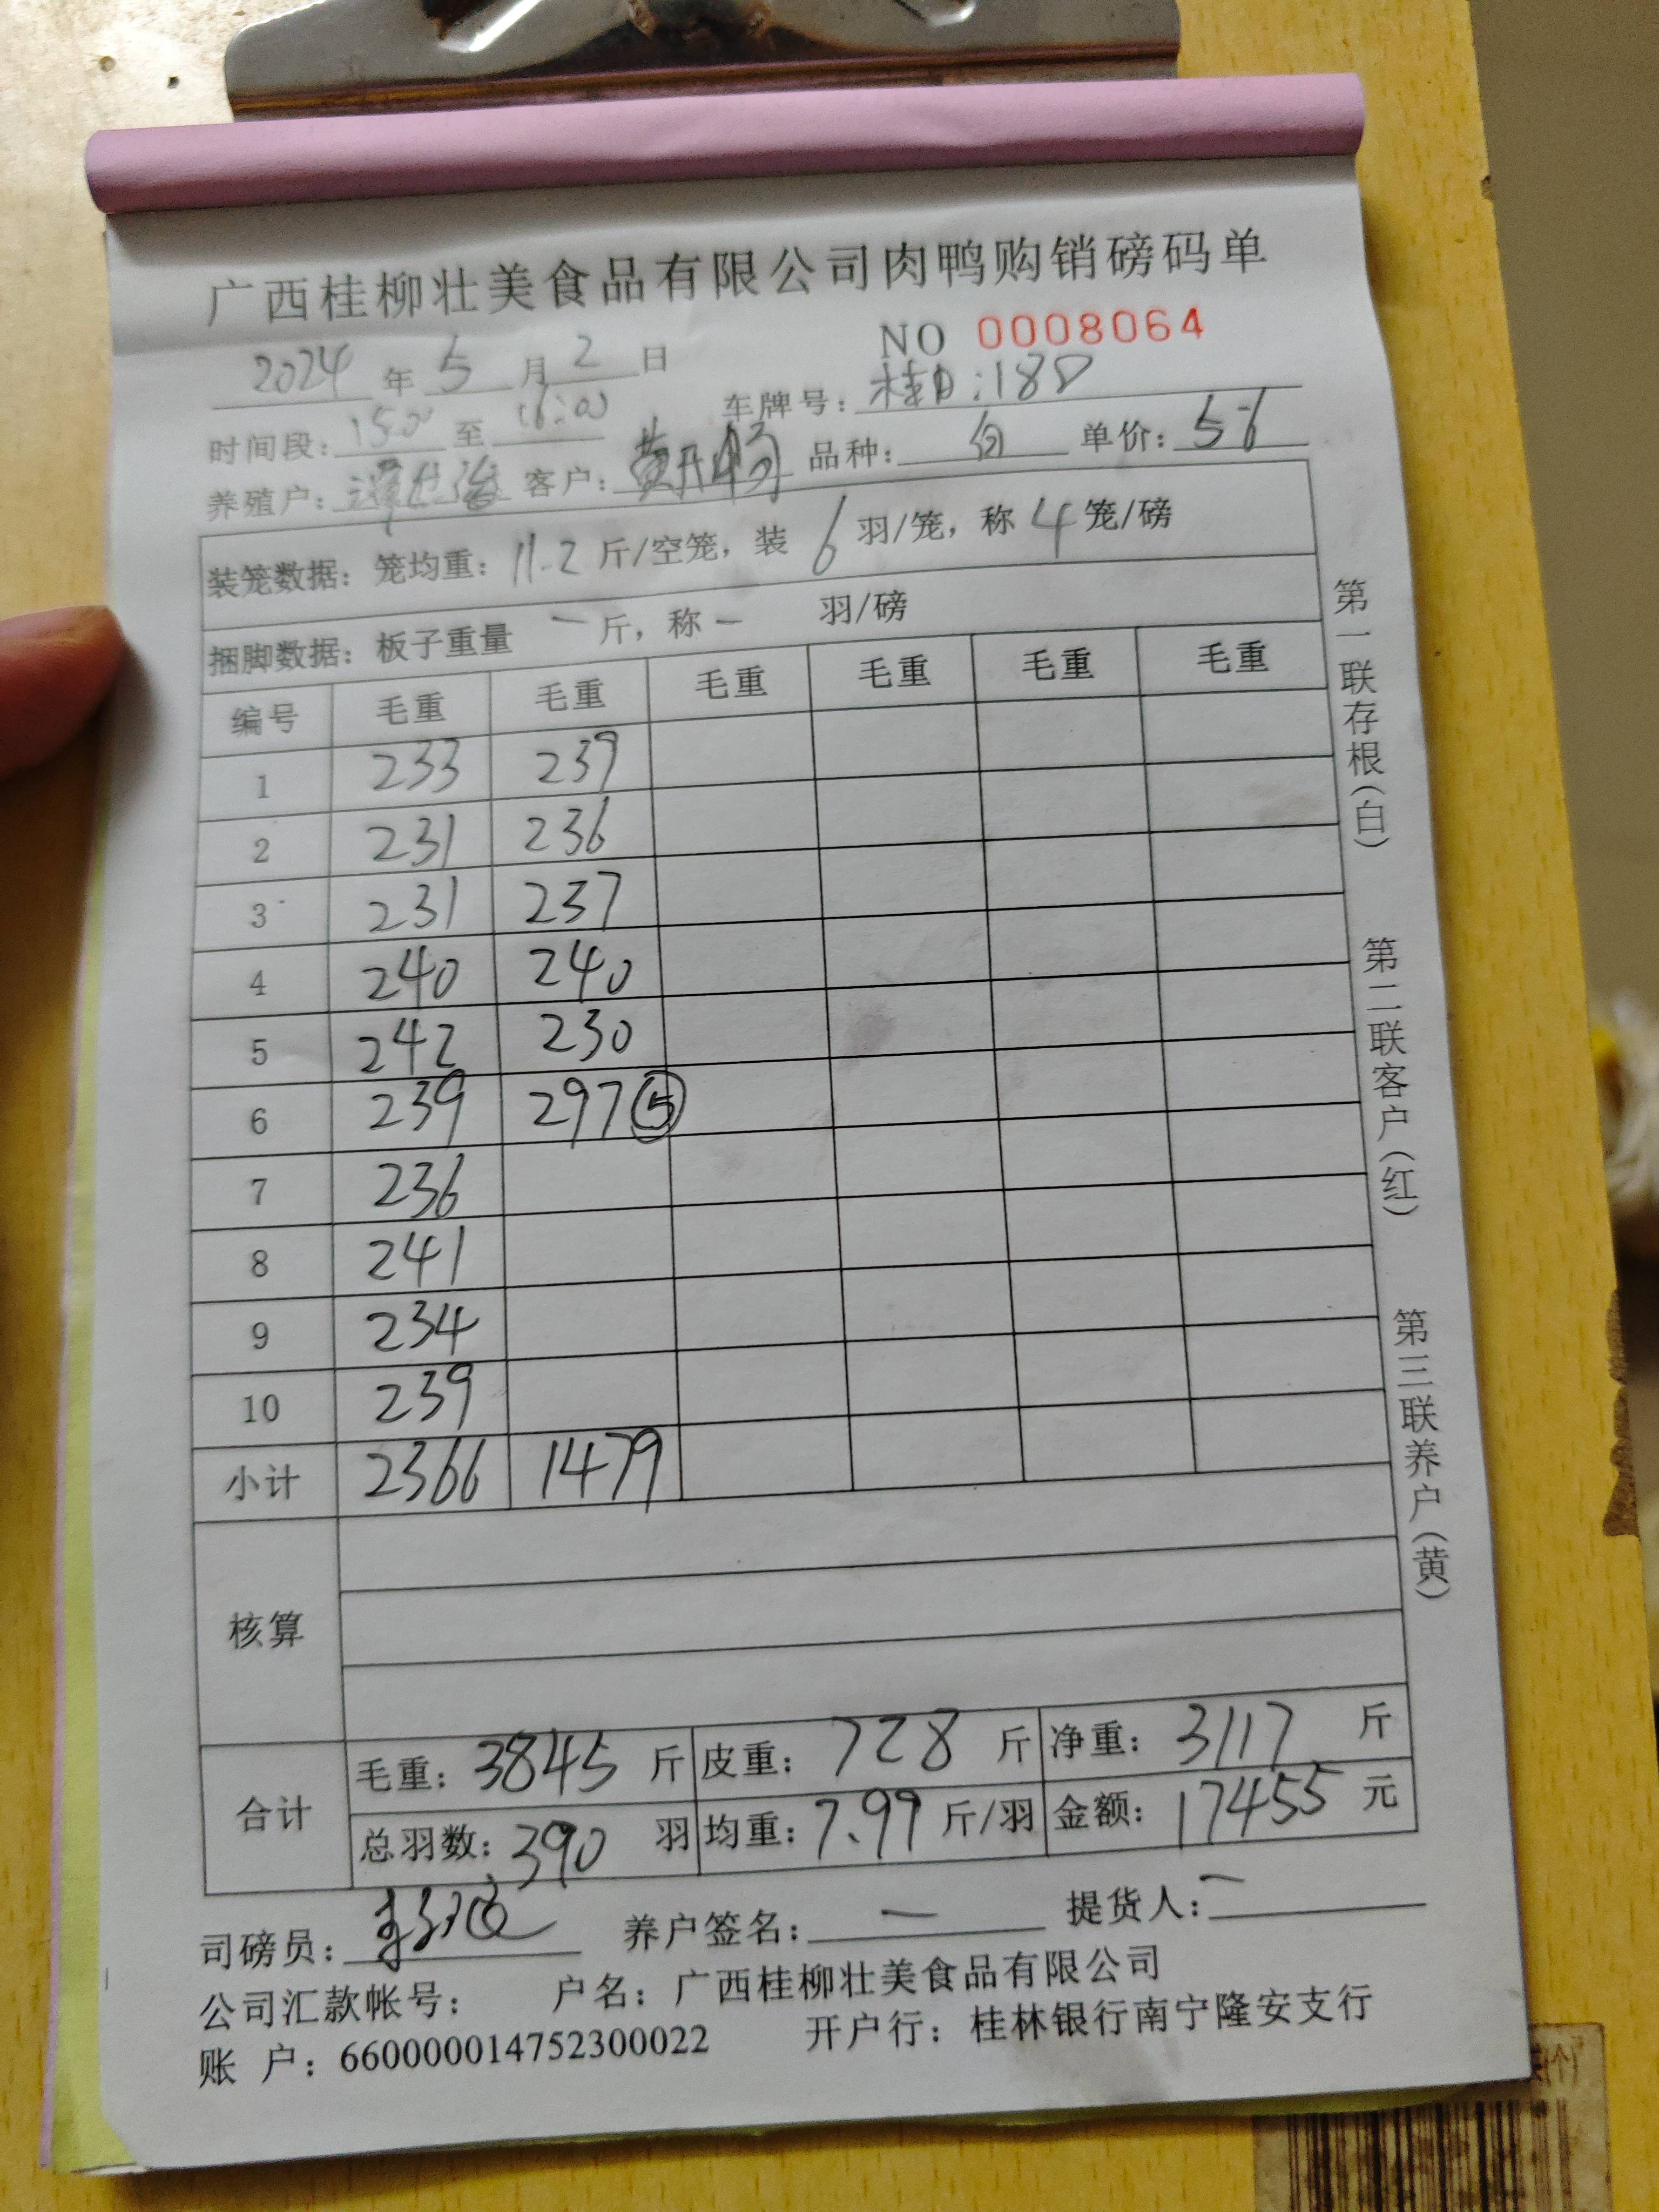 广西桂柳壮美食品有限公司肉鸭购销磅码单
NO 0008064
2024 年 5 月 2 日
时间段: 15:00 至 16:00 车牌号: 桂D:188
养殖户: 客户: 黄丹畅 品种: 白 单价: 5.6
装笼数据: 笼均重: 11.2 斤/空笼, 装 6 羽/笼, 称 4 笼/磅
捆脚数据: 板子重量 一 斤, 称 一 羽/磅
编号 毛重 毛重 毛重 毛重 毛重 毛重
1 233 239
2 231 236
3 231 237
4 240 240
5 242 230
6 239 297 ⑤
7 236
8 241
9 234
10 239
小计 2366 1479
核算
合计 毛重: 3845 斤 皮重: 728 斤 净重: 3117 斤
总羽数: 390 羽 均重: 7.99 斤/羽 金额: 17455 元
司磅员: 养户签名: 一 提货人: 一
公司汇款帐号: 户名: 广西桂柳壮美食品有限公司
账 户: 660000014752300022 开户行: 桂林银行南宁隆安支行
第一联存根(白)
第二联客户(红)
第三联养户(黄)